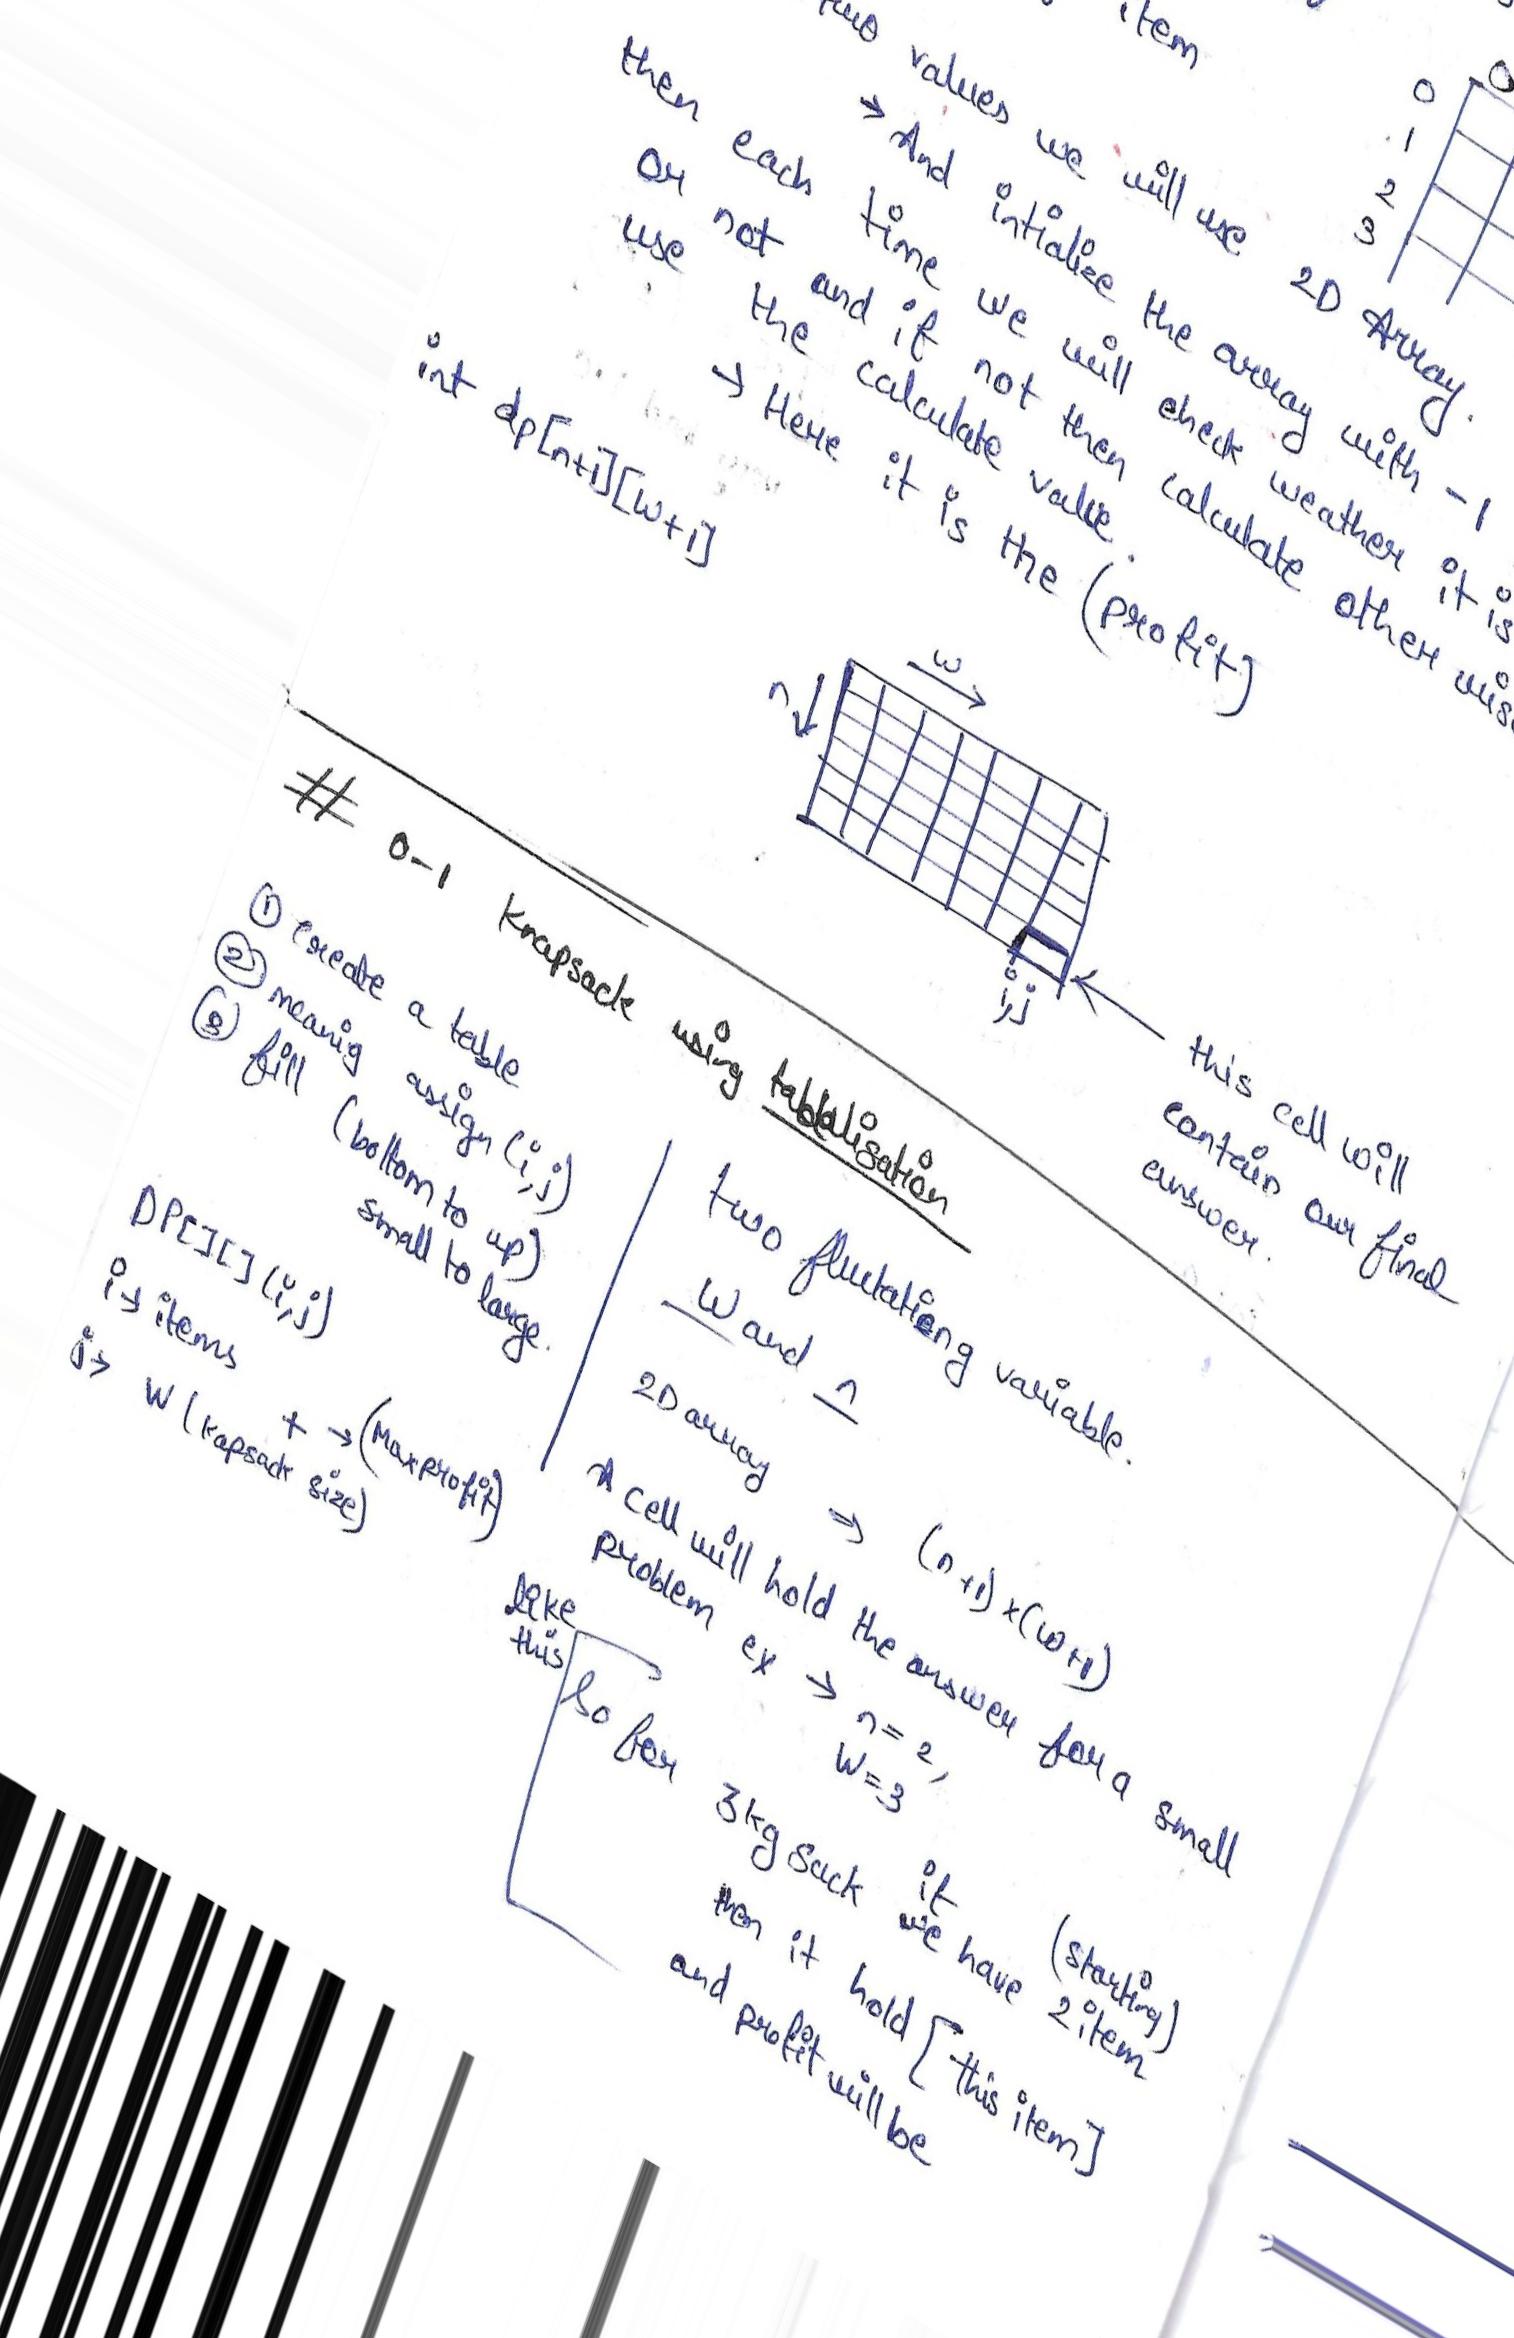 item
two values we will use 2D Array.
→ And intialize the array with -1
then each time we will check weather it is
or not and if not then calculate other wise
use the calculate value.
→ Here it is the (profit)
int dp[n+1][W+1]
0
0
1
2
3
n
w
i,j
this cell will
contain our final
answer.
# 0-1 Knapsack using tabulisation
① create a table
② meanig assign (i,j)
③ fill (bottom to up)
small to large.
DP[][] (i,j)
i → items
+ → (Max profit)
j → W (kapsack size)
two flutating variable.
W and n
2D array ⇒ (n+1)×(w+1)
A cell will hold the answer for a small
problem ex → n=2,
W=3
like
this
So for 3kg sack if (starting)
we have 2 item
then it hold [this item]
and profit will be